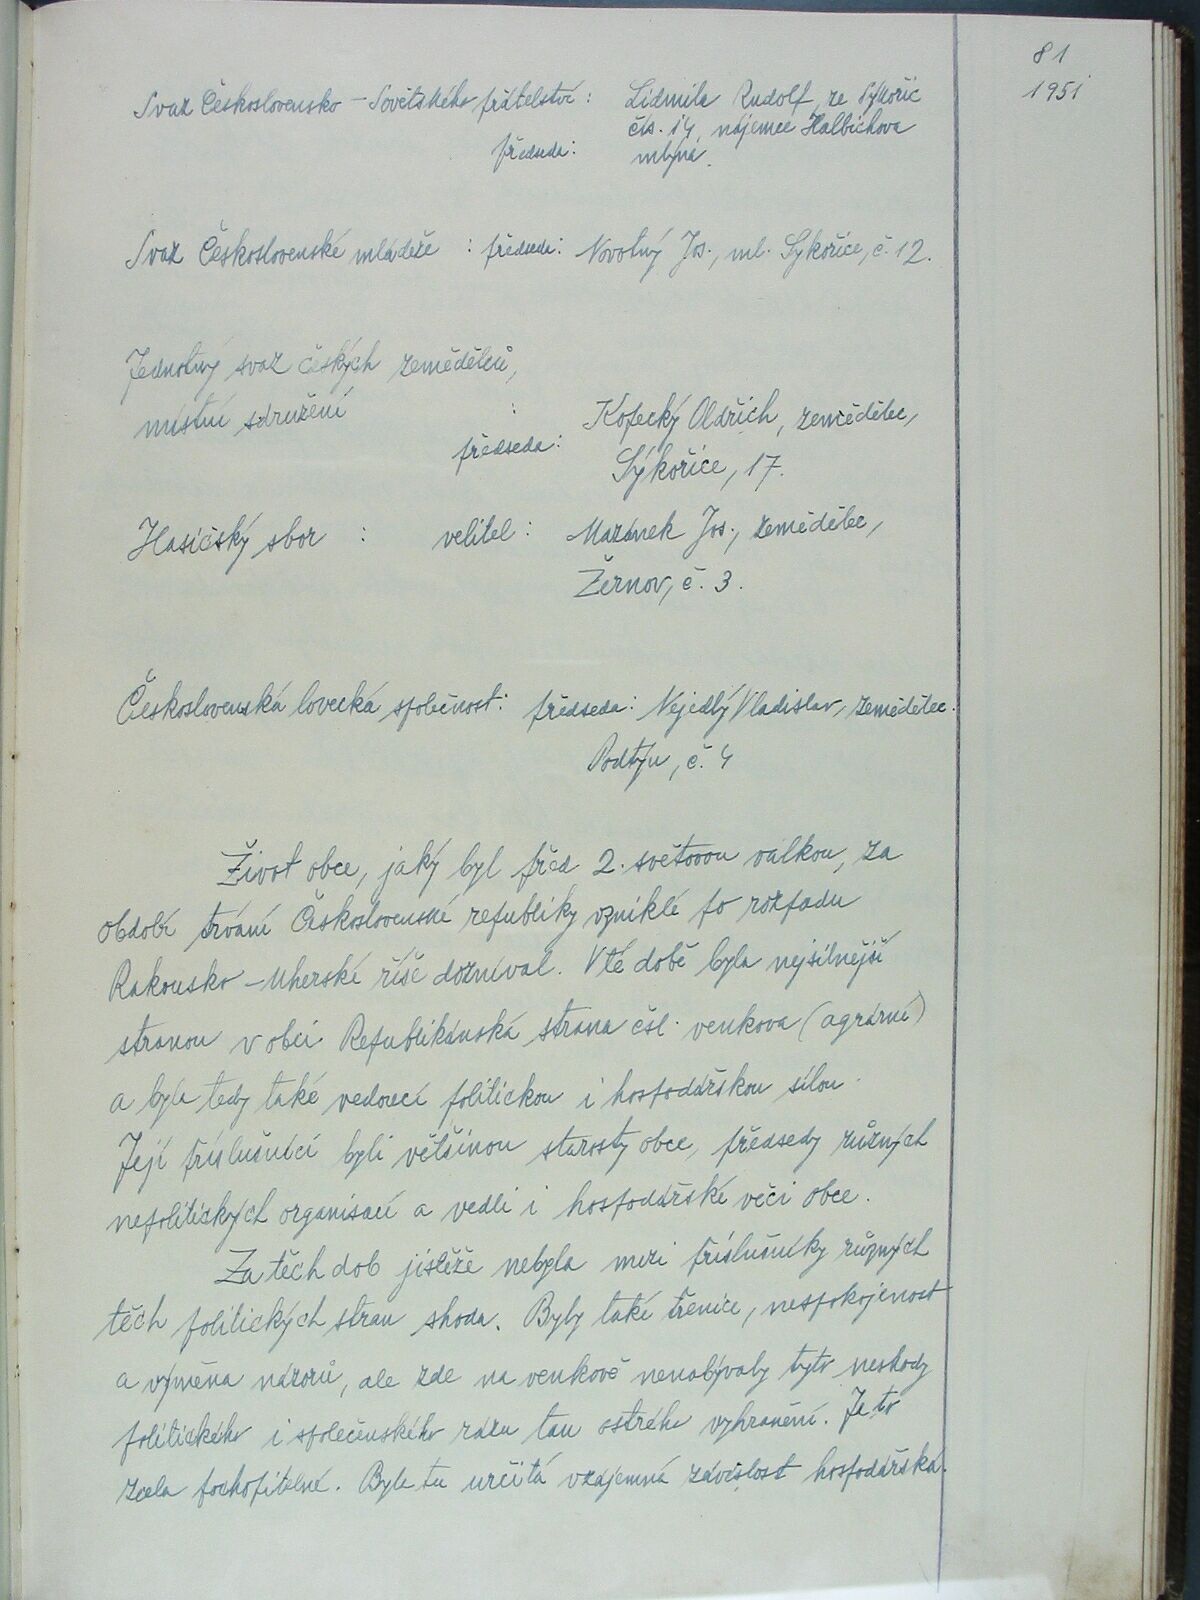 81
1951
Svaz Československo - Sovětského přátelství : Lidmila Rudolf, ze Sýkořic
čís. 14, nájemce Halbichova
předseda: mlýna.
Svaz Československé mládeže : předseda: Novotný Jos., ml. Sýkořice, č. 12.
Jednotný svaz českých zemědělců,
místní sdružení :
Kopecký Oldřich, zemědělec,
předseda:
Sýkořice, 17.
Hasičský sbor : velitel : Mazánek Jos., zemědělec,
Žernov, č. 3.
Československá lovecká společnost: předseda: Nejedlý Vladislav, zemědělec.
Podtýn, č. 4
Život obce, jaký byl před 2. světovou válkou, za
období trvání Československé republiky vzniklé po rozpadu
Rakousko - Uherské říše dozníval. V té době byla nejsilnější
stranou v obci Republikánská strana čsl. venkova (agrární)
a byla tedy také vedoucí politickou i hospodářskou silou.
Její příslušníci byli většinou starosty obce, předsedy různých
nepolitických organisací a vedli i hospodářské věci obce.
Za těch dob jistěže nebyla mezi příslušníky různých
těch politických stran shoda. Byly také třenice, nespokojenost
a výměna názorů, ale zde na venkově nenabývaly tyto neshody
politického i společenského rázu tau ostrého vyhranění. Je to
zcela pochopitelné. Byla tu určitá vzájemná závislost hospodářská.